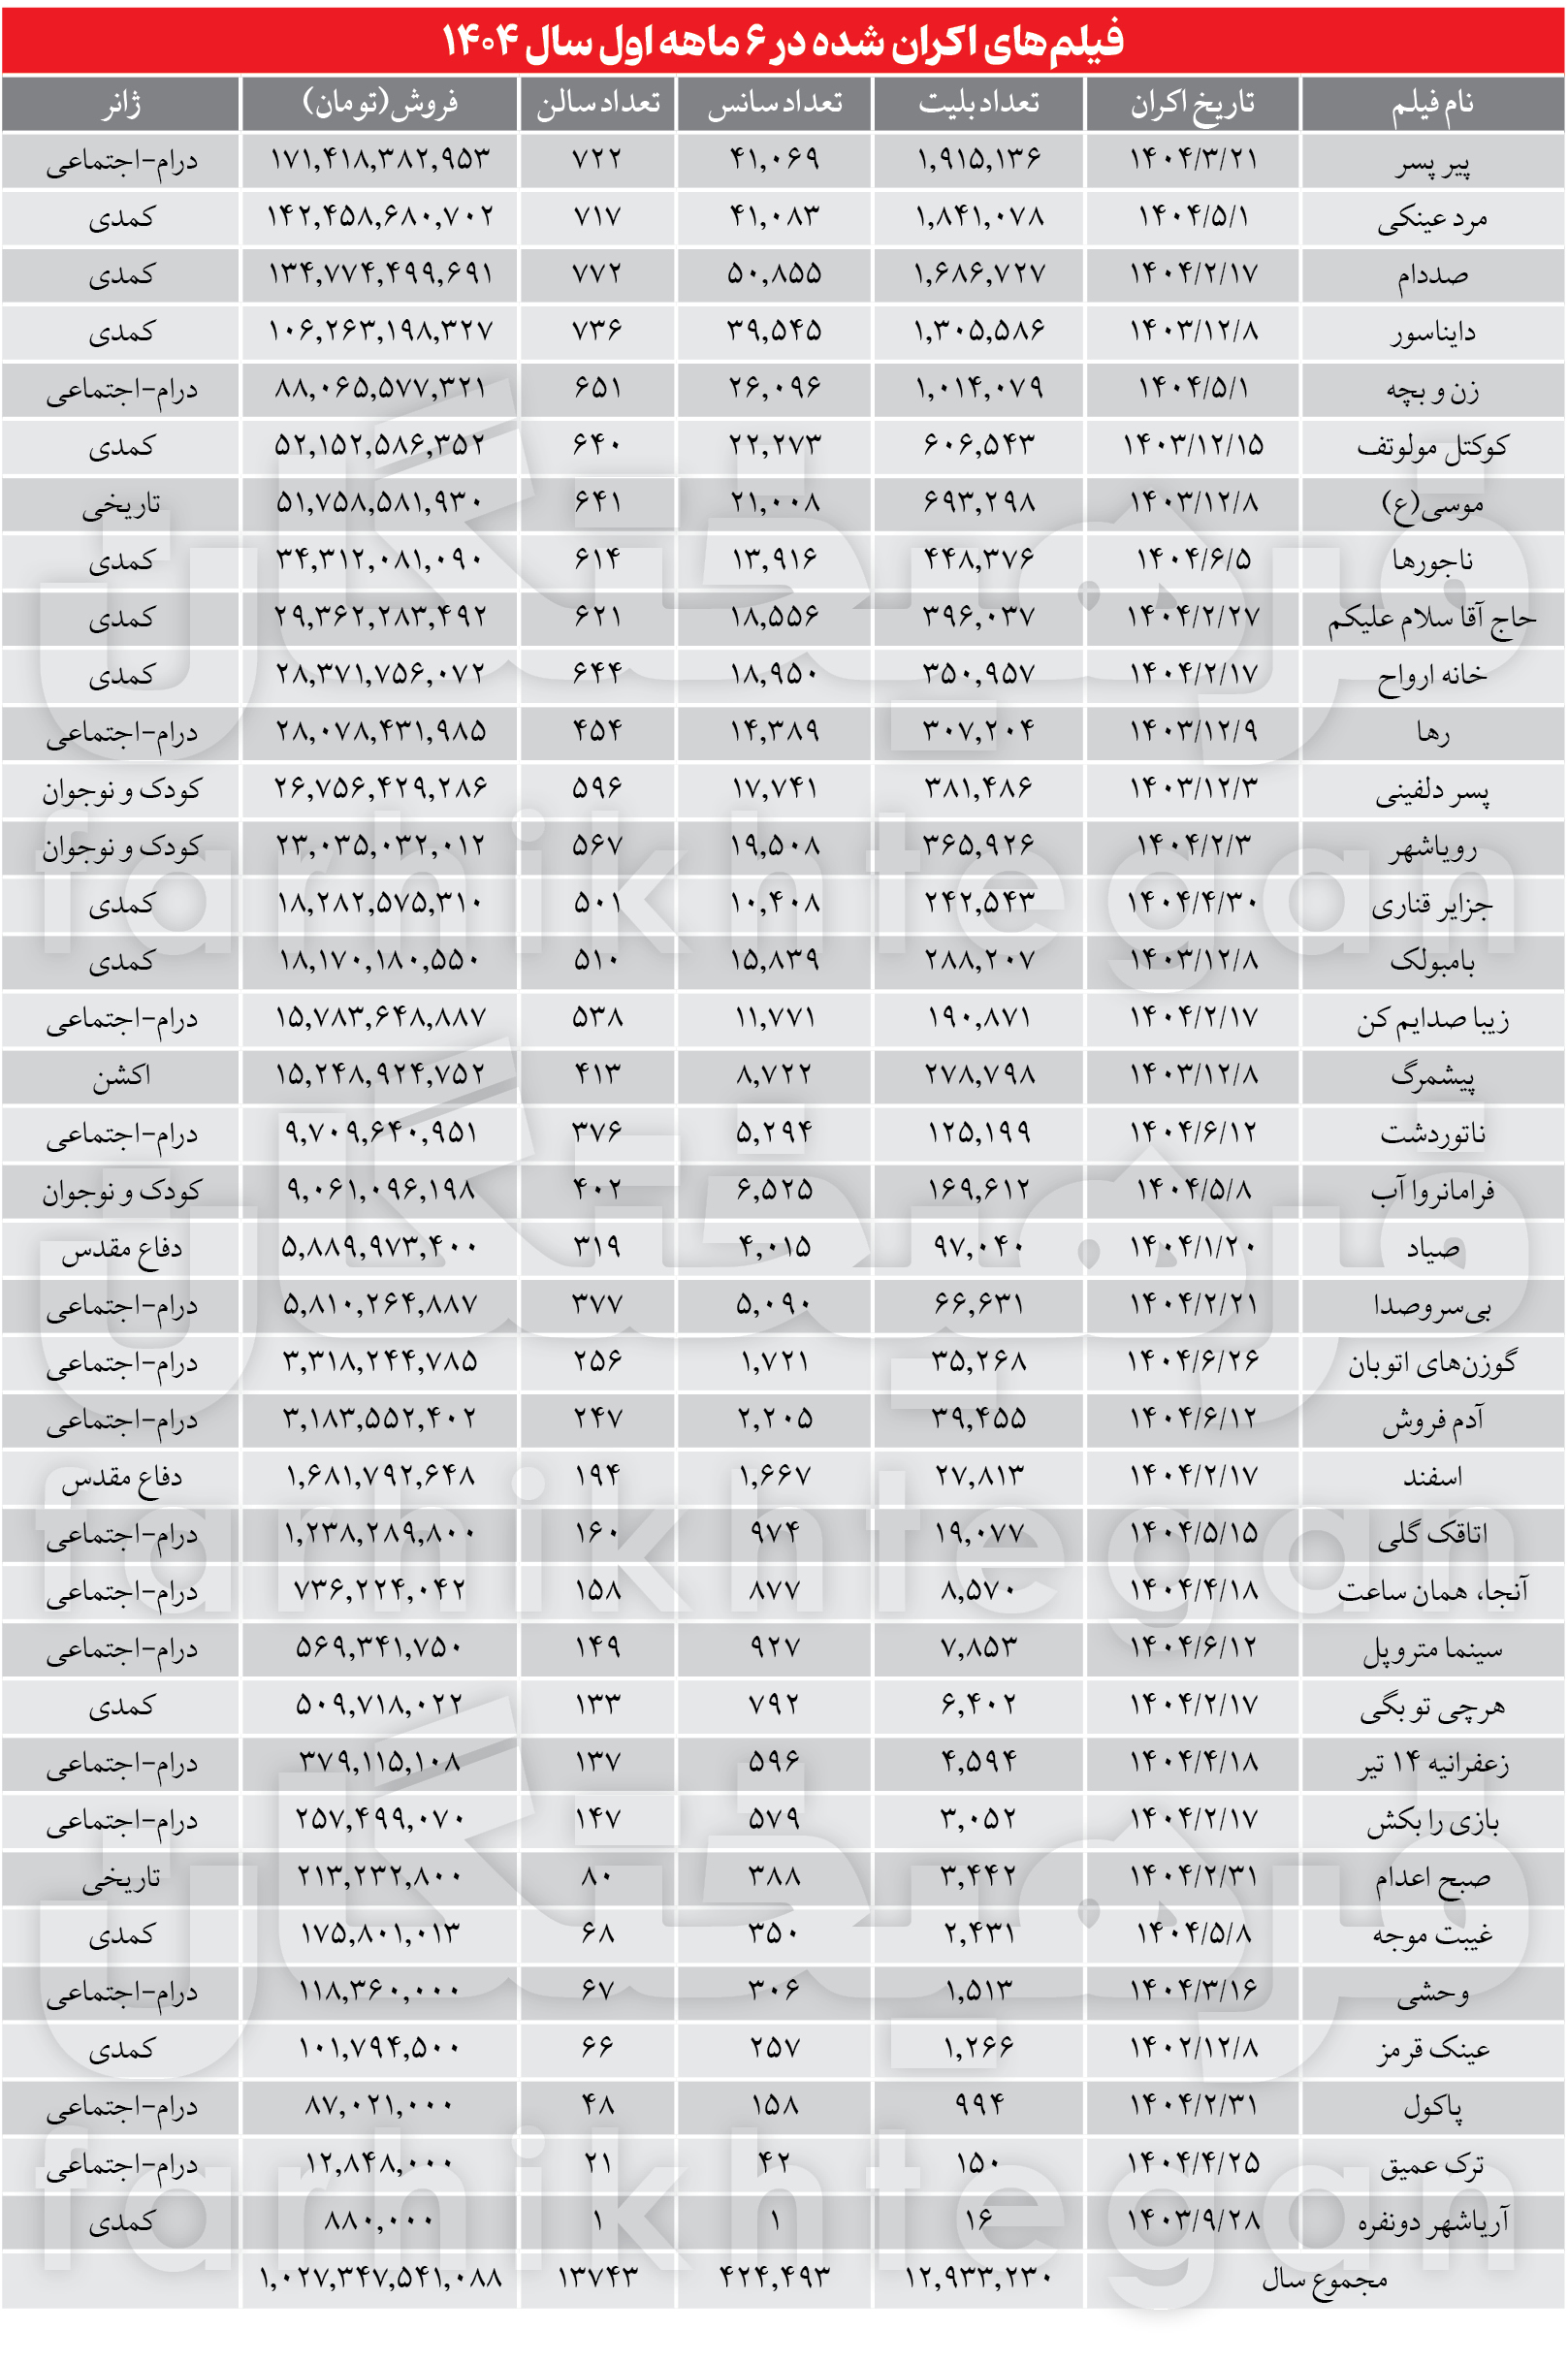 فیلم‌های اکران شده در ۶ ماهه اول سال ۱۴۰۴
نام فیلم تاریخ اکران تعداد بلیت تعداد سانس تعداد سالن فروش(تومان) ژانر
پیر پسر ۱۴۰۴/۳/۲۱ ۱,۹۱۵,۱۳۶ ۴۱,۰۶۹ ۷۲۲ ۱۷۱,۴۱۸,۳۸۲,۹۵۳ درام-اجتماعی
مرد عینکی ۱۴۰۴/۵/۱ ۱,۸۴۱,۰۷۸ ۴۱,۰۸۳ ۷۱۷ ۱۴۲,۴۵۸,۶۸۰,۷۰۲ کمدی
صددام ۱۴۰۴/۲/۱۷ ۱,۶۸۶,۷۲۷ ۵۰,۸۵۵ ۷۷۲ ۱۳۴,۷۷۴,۴۹۹,۶۹۱ کمدی
دایناسور ۱۴۰۳/۱۲/۸ ۱,۳۰۵,۵۸۶ ۳۹,۵۴۵ ۷۳۶ ۱۰۶,۲۶۳,۱۹۸,۳۲۷ کمدی
زن و بچه ۱۴۰۴/۵/۱ ۱,۰۱۴,۰۷۹ ۲۶,۰۹۶ ۶۵۱ ۸۸,۰۶۵,۵۷۷,۳۲۱ درام-اجتماعی
کوکتل مولوتف ۱۴۰۳/۱۲/۱۵ ۶۰۶,۵۴۳ ۲۲,۲۷۳ ۶۴۰ ۵۲,۱۵۲,۵۸۶,۳۵۲ کمدی
موسی(ع) ۱۴۰۳/۱۲/۸ ۶۹۳,۲۹۸ ۲۱,۰۰۸ ۶۴۱ ۵۱,۷۵۸,۵۸۱,۹۳۰ تاریخی
ناجورها ۱۴۰۴/۶/۵ ۴۴۸,۳۷۶ ۱۳,۹۱۶ ۶۱۴ ۳۴,۳۱۲,۰۸۱,۰۹۰ کمدی
حاج آقا سلام علیکم ۱۴۰۴/۲/۲۷ ۳۹۶,۰۳۷ ۱۸,۵۵۶ ۶۲۱ ۲۹,۳۶۲,۲۸۳,۴۹۲ کمدی
خانه ارواح ۱۴۰۴/۲/۱۷ ۳۵۰,۹۵۷ ۱۸,۹۵۰ ۶۴۴ ۲۸,۳۷۱,۷۵۶,۰۷۲ کمدی
رها ۱۴۰۳/۱۲/۹ ۳۰۷,۲۰۴ ۱۴,۳۸۹ ۴۵۴ ۲۸,۰۷۸,۴۳۱,۹۸۵ درام-اجتماعی
پسر دلفینی ۱۴۰۳/۱۲/۳ ۳۸۱,۴۸۶ ۱۷,۷۴۱ ۵۹۶ ۲۶,۷۵۶,۴۲۹,۲۸۶ کودک و نوجوان
رویاشهر ۱۴۰۴/۲/۳ ۳۶۵,۹۲۶ ۱۹,۵۰۸ ۵۶۷ ۲۳,۰۳۵,۰۳۲,۰۱۲ کودک و نوجوان
جزایر قناری ۱۴۰۴/۴/۳۰ ۲۴۲,۵۴۳ ۱۰,۴۰۸ ۵۰۱ ۱۸,۲۸۲,۵۷۵,۳۱۰ کمدی
بامبولک ۱۴۰۳/۱۲/۸ ۲۸۸,۲۰۷ ۱۵,۸۳۹ ۵۱۰ ۱۸,۱۷۰,۱۸۰,۵۵۰ کمدی
زیبا صدایم کن ۱۴۰۴/۲/۱۷ ۱۹۰,۸۷۱ ۱۱,۷۷۱ ۵۳۸ ۱۵,۷۸۳,۶۴۸,۸۸۷ درام-اجتماعی
پیشمرگ ۱۴۰۳/۱۲/۸ ۲۷۸,۷۹۸ ۸,۷۲۲ ۴۱۳ ۱۵,۲۴۸,۹۲۴,۷۵۲ اکشن
ناتوردشت ۱۴۰۴/۶/۱۲ ۱۲۵,۱۹۹ ۵,۲۹۴ ۳۷۶ ۹,۷۰۹,۶۴۰,۹۵۱ درام-اجتماعی
فرامانروا آب ۱۴۰۴/۵/۸ ۱۶۹,۶۱۲ ۶,۵۲۵ ۴۰۲ ۹,۰۶۱,۰۹۶,۱۹۸ کودک و نوجوان
صیاد ۱۴۰۴/۱/۲۰ ۹۷,۰۴۰ ۴,۰۱۵ ۳۱۹ ۵,۸۸۹,۹۷۳,۴۰۰ دفاع مقدس
بی‌سروصدا ۱۴۰۴/۲/۲۱ ۶۶,۶۳۱ ۵,۰۹۰ ۳۷۷ ۵,۸۱۰,۲۶۴,۸۸۷ درام-اجتماعی
گوزن‌های اتوبان ۱۴۰۴/۶/۲۶ ۳۵,۲۶۸ ۱,۷۲۱ ۲۵۶ ۳,۳۱۸,۲۴۴,۷۸۵ درام-اجتماعی
آدم فروش ۱۴۰۴/۶/۱۲ ۳۹,۴۵۵ ۲,۲۰۵ ۲۴۷ ۳,۱۸۳,۵۵۲,۴۰۲ درام-اجتماعی
اسفند ۱۴۰۴/۲/۱۷ ۲۷,۸۱۳ ۱,۶۶۷ ۱۹۴ ۱,۶۸۱,۷۹۲,۶۴۸ دفاع مقدس
اتاقک گلی ۱۴۰۴/۵/۱۵ ۱۹,۰۷۷ ۹۷۴ ۱۶۰ ۱,۲۳۸,۲۸۹,۸۰۰ درام-اجتماعی
آنجا، همان ساعت ۱۴۰۴/۴/۱۸ ۸,۵۷۰ ۸۷۷ ۱۵۸ ۷۳۶,۲۲۴,۰۴۲ درام-اجتماعی
سینما متروپل ۱۴۰۴/۶/۱۲ ۷,۸۵۳ ۹۲۷ ۱۴۹ ۵۶۹,۳۴۱,۷۵۰ درام-اجتماعی
هرچی تو بگی ۱۴۰۴/۲/۱۷ ۶,۴۰۲ ۷۹۲ ۱۳۳ ۵۰۹,۷۱۸,۰۲۲ کمدی
زعفرانیه ۱۴ تیر ۱۴۰۴/۴/۱۸ ۴,۵۹۴ ۵۹۶ ۱۳۷ ۳۷۹,۱۱۵,۱۰۸ درام-اجتماعی
بازی را بکش ۱۴۰۴/۲/۱۷ ۳,۰۵۲ ۵۷۹ ۱۴۷ ۲۵۷,۴۹۹,۰۷۰ درام-اجتماعی
صبح اعدام ۱۴۰۴/۲/۳۱ ۳,۴۴۲ ۳۸۸ ۸۰ ۲۱۳,۲۳۲,۸۰۰ تاریخی
غیبت موجه ۱۴۰۴/۵/۸ ۲,۴۳۱ ۳۵۰ ۶۸ ۱۷۵,۸۰۱,۰۱۳ کمدی
وحشی ۱۴۰۴/۳/۱۶ ۱,۵۱۳ ۳۰۶ ۶۷ ۱۱۸,۳۶۰,۰۰۰ درام-اجتماعی
عینک قرمز ۱۴۰۲/۱۲/۸ ۱,۲۶۶ ۲۵۷ ۶۶ ۱۰۱,۷۹۴,۵۰۰ کمدی
پاکول ۱۴۰۴/۲/۳۱ ۹۹۴ ۱۵۸ ۴۸ ۸۷,۰۲۱,۰۰۰ درام-اجتماعی
ترک عمیق ۱۴۰۴/۴/۲۵ ۱۵۰ ۴۲ ۲۱ ۱۲,۸۴۸,۰۰۰ درام-اجتماعی
آریاشهر دونفره ۱۴۰۳/۹/۲۸ ۱۶ ۱ ۱ ۸۸۰,۰۰۰ کمدی
مجموع سال ۱۲,۹۳۳,۲۳۰ ۴۲۴,۴۹۳ ۱۳۷۴۳ ۱,۰۲۷,۳۴۷,۵۴۱,۰۸۸
فرهیختگان
farhikhtegan
فرهیختگان
farhikhtegan
فرهیختگان
farhikhtegan